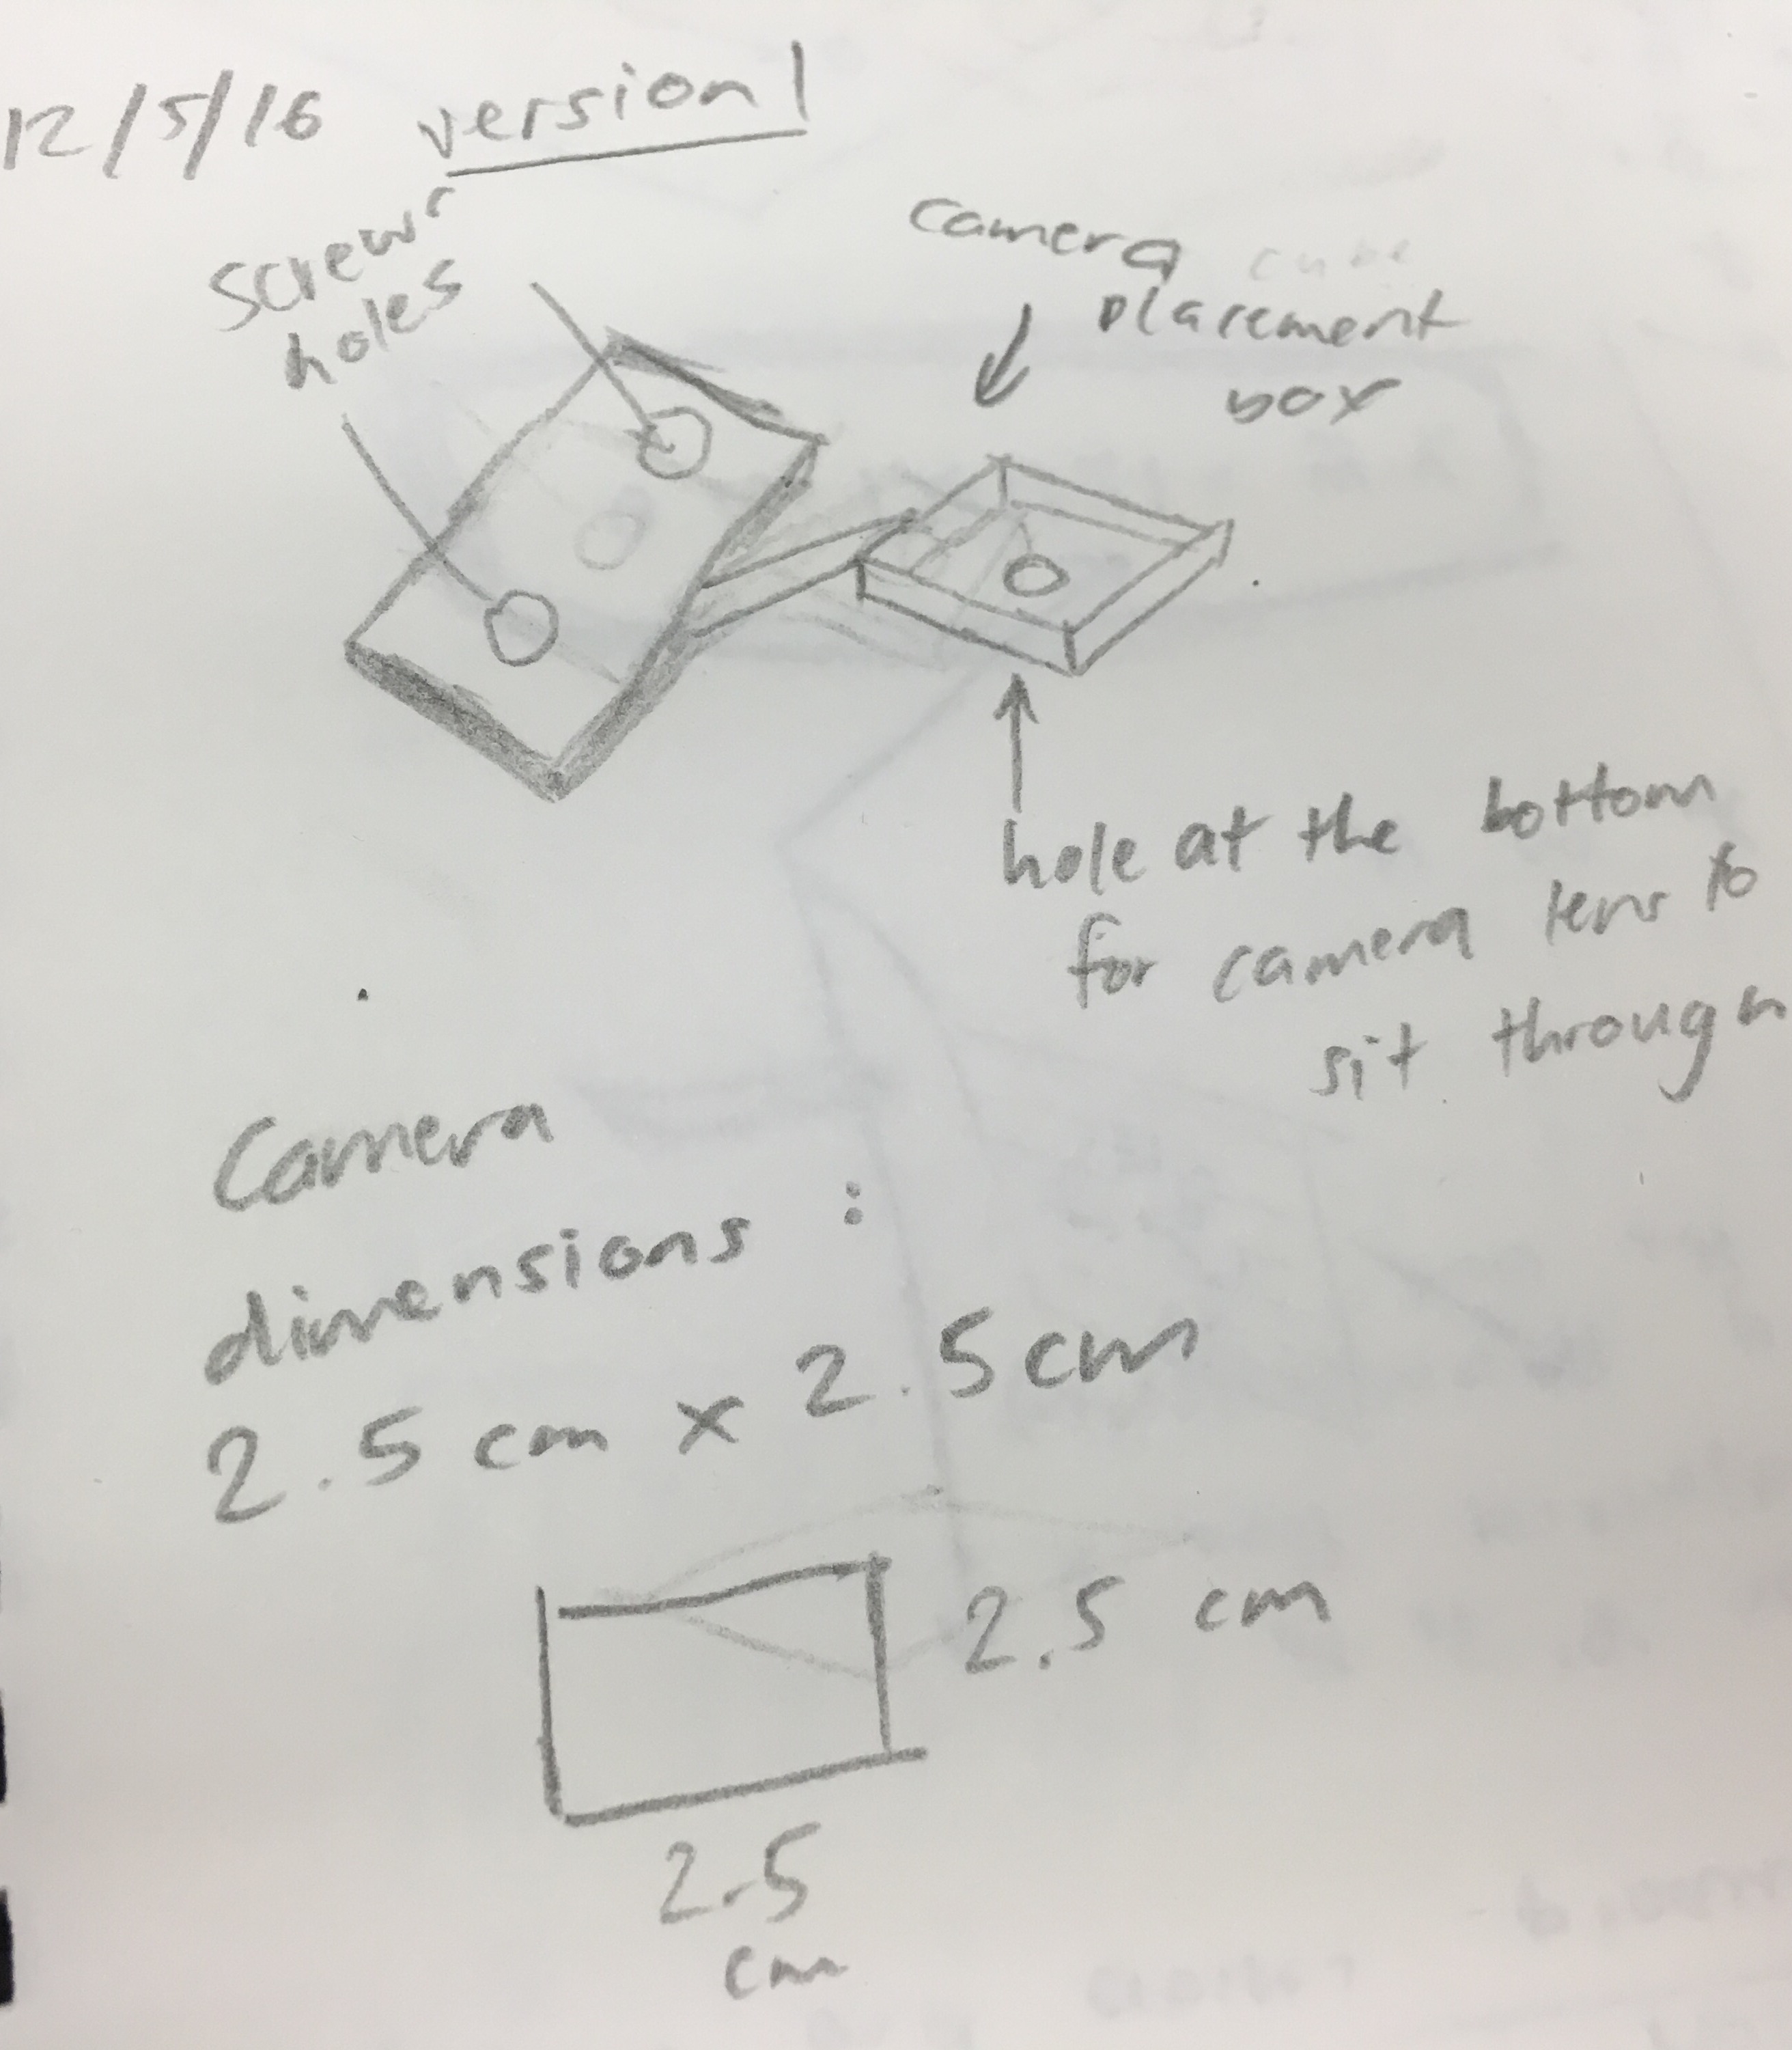 12/5/16 version 1
screw
holes
camera
placement
box
hole at the bottom
for camera lens to
sit through
Camera
dimensions :
2.5 cm x 2.5 cm
2.5 cm
2.5
cm